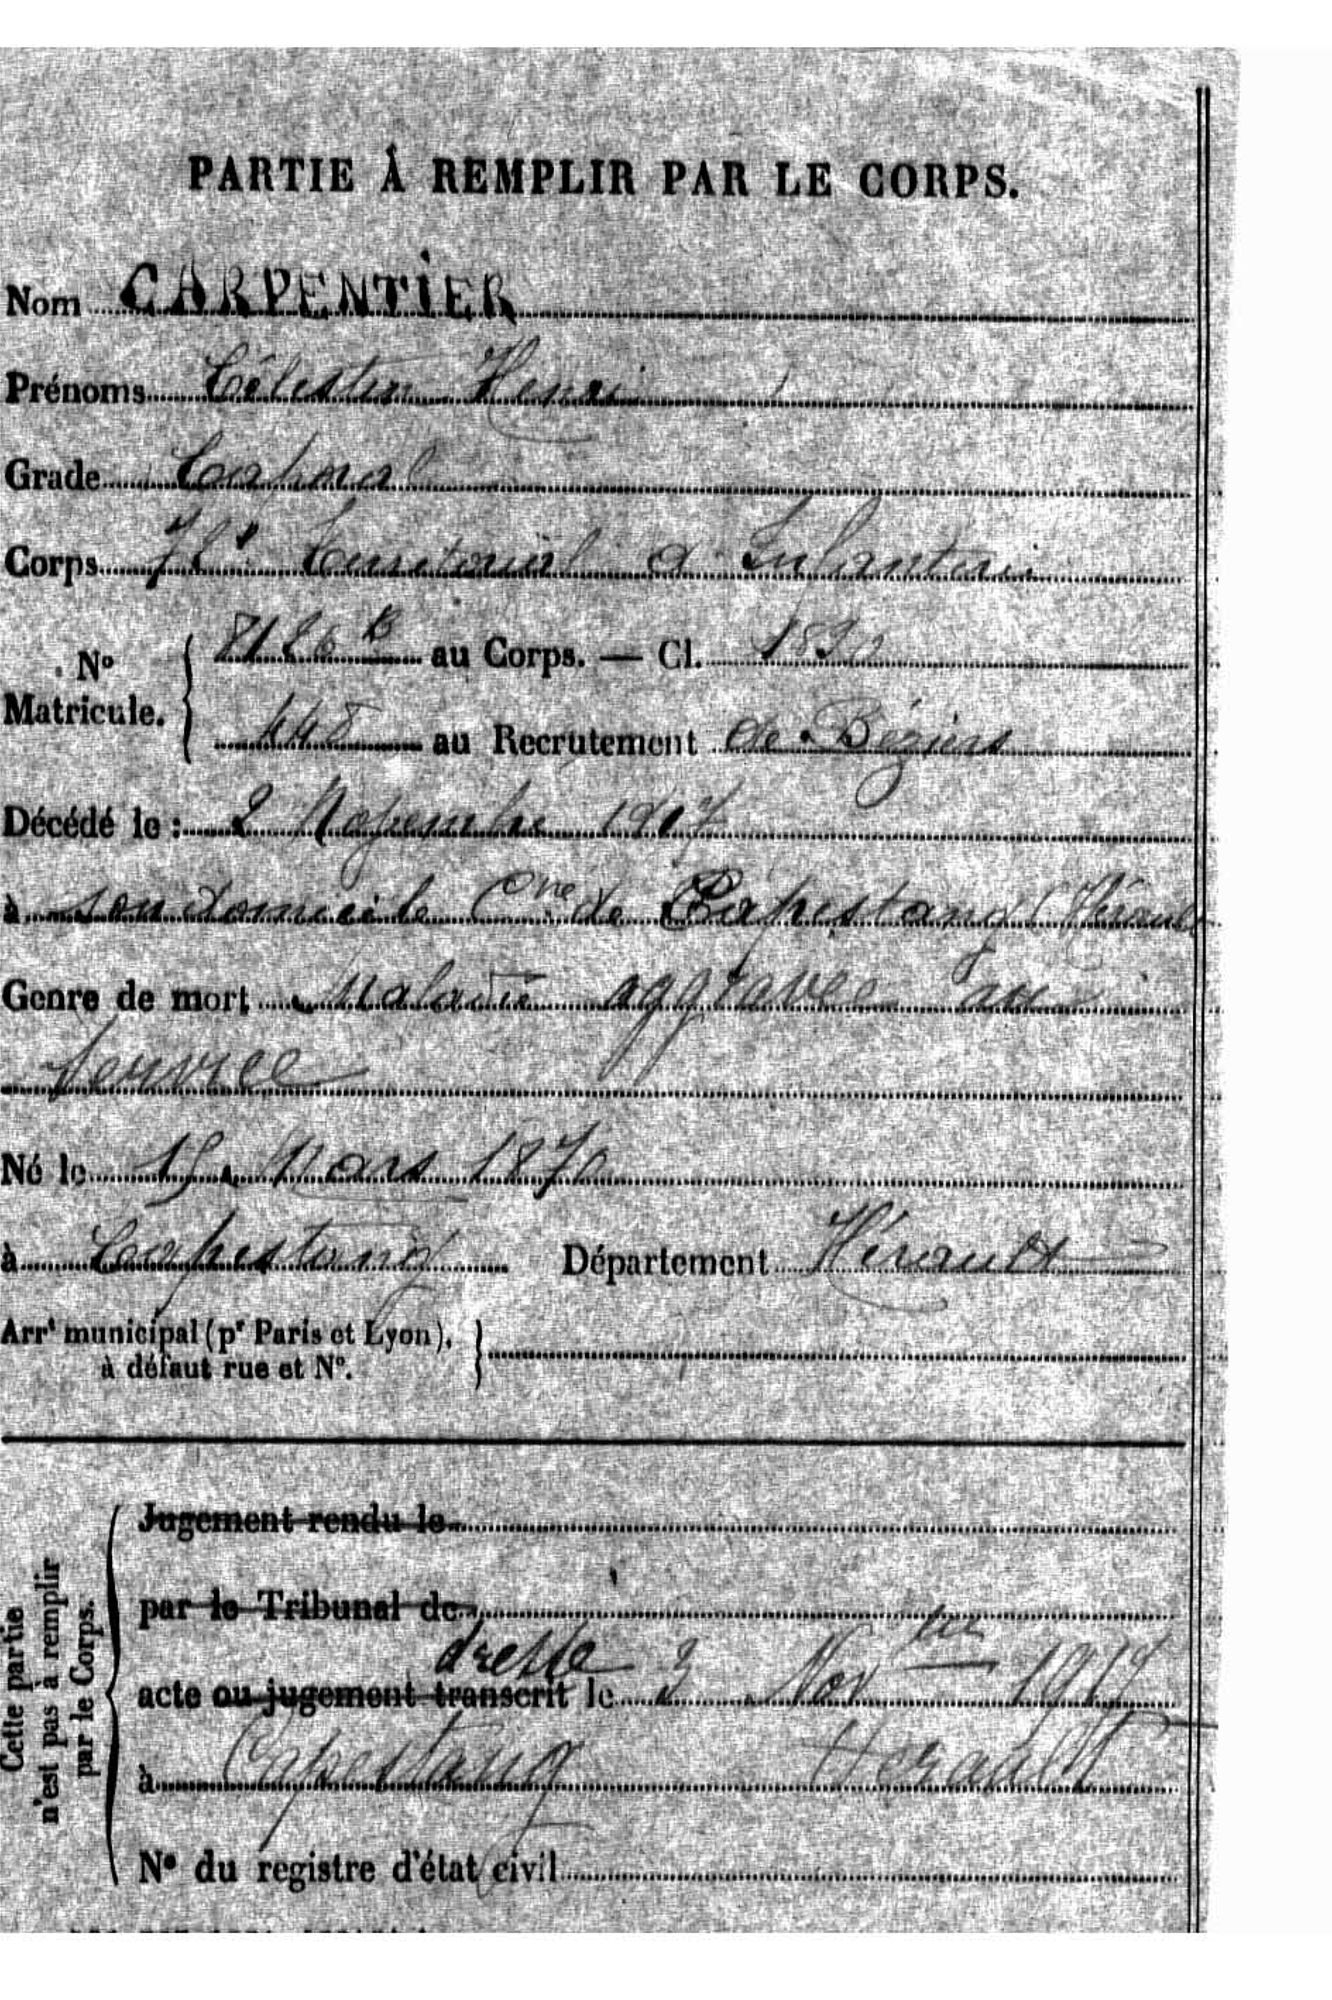 PARTIE À REMPLIR PAR LE CORPS.
Nom CARPENTIER
Prénoms Célestin Henri
Grade Caporal
Corps 72e Territorial d'Infanterie
No Matricule. 8126 B au Corps. — Cl. 1890
448 au Recrutement de Béziers
Décédé le : 2 Novembre 1917
à son domicile Cne de Capestang (Hérault
Genre de mort Maladie aggravée au
service
Né le 15 Mars 1870
à Capestang Département Hérault
Arrt municipal (pr Paris et Lyon),
à défaut rue et No.
Cette partie
n'est pas à remplir
par le Corps.
Jugement rendu le
par le Tribunal de
dressé
acte ou jugement transcrit le 3 Novbre 1917
à Capestang Hérault
No du registre d'état civil